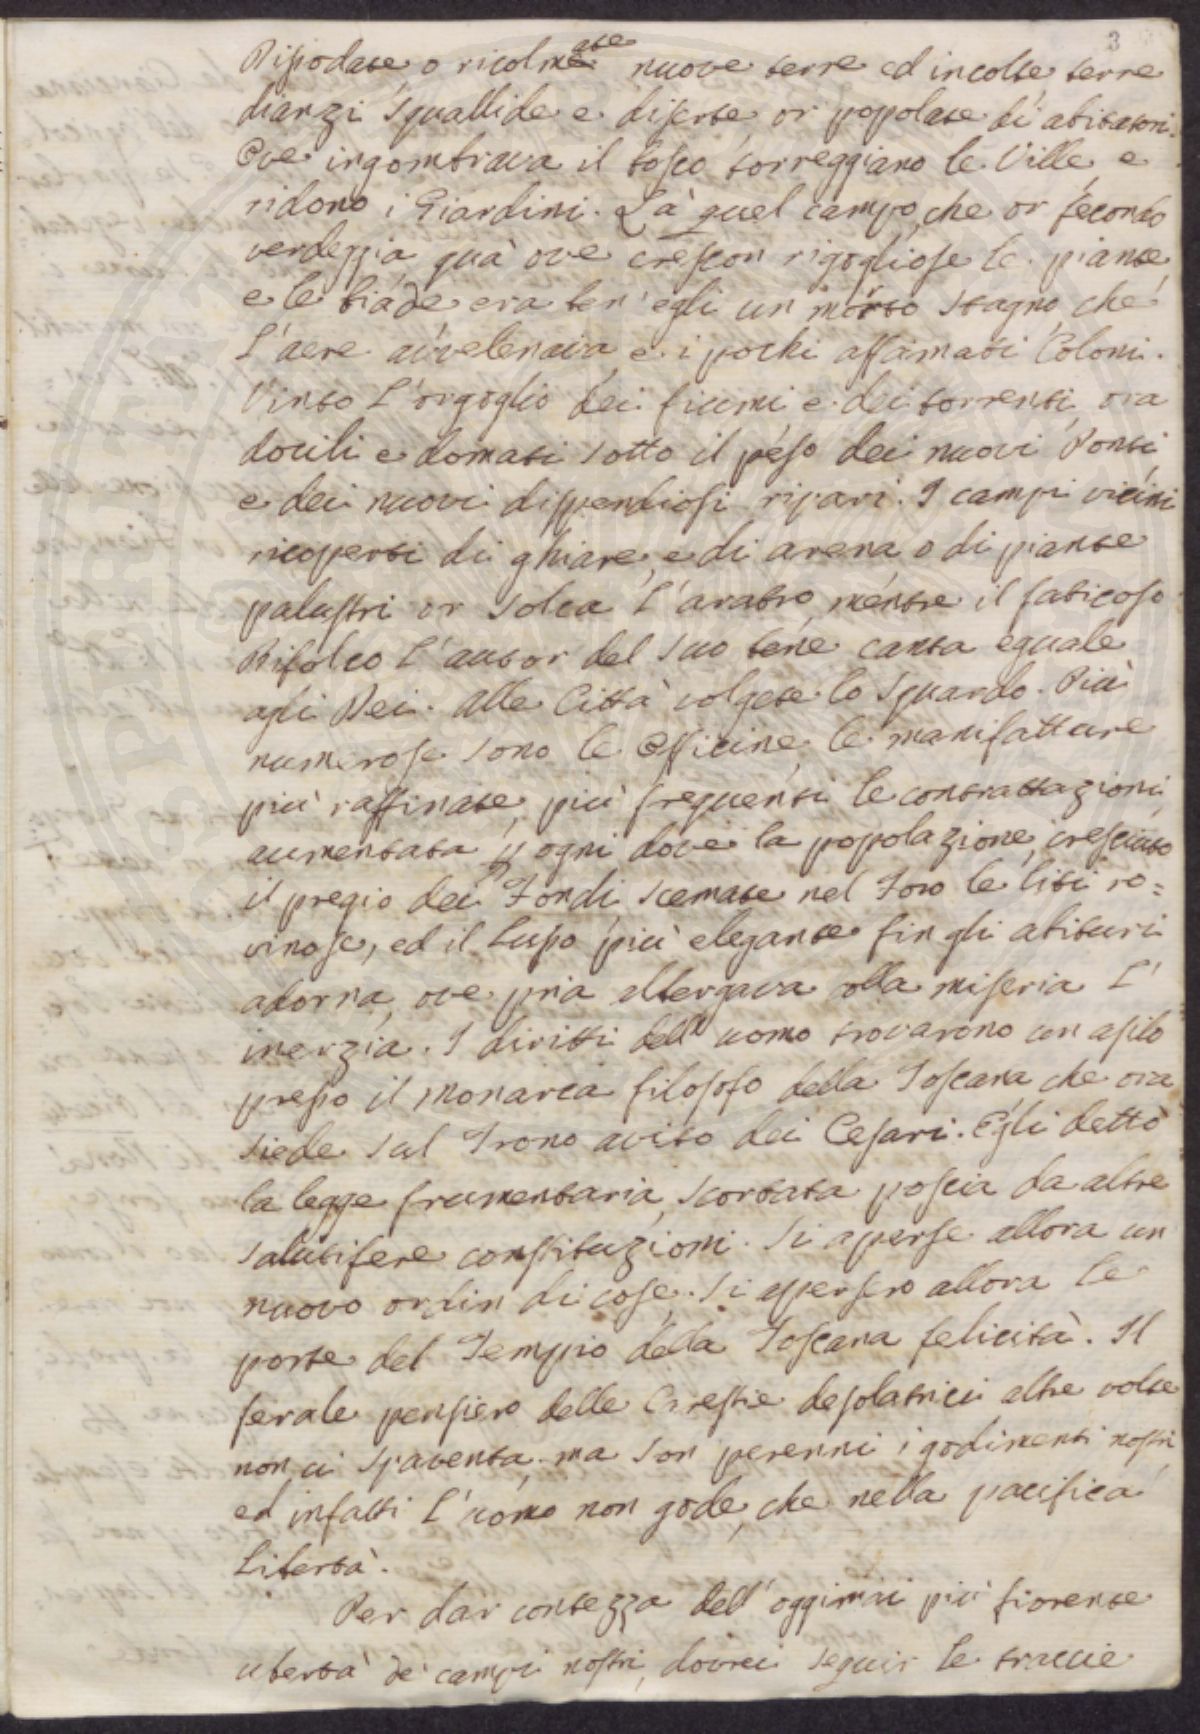 3
Ripodate o ricolmate nuove terre ed incolte, terre
dianzi squallide e diserte, or popolate di abitatori.
Ove ingombrava il bosco torreggiano le Ville, e
ridono i Giardini. Là quel campo, che or fecondo
verdeggia quà ove crescon rigogliose le piante,
e le biade era ben'egli un morto stagno che
l'aere avvelenava e i pochi affamati Coloni.
Vinto l'orgoglio dei fiumi e dei torrenti, ora
docili e domati sotto il peso dei nuovi Ponti
e dei nuovi dispendiosi ripari. I campi vicini
ricoperti di ghiare, e di arena o di piante
palustri or solca l'aratro, mentre il faticoso
Bifolco l'autor del suo bene canta eguale
agli Dei. Alle Città volgete lo sguardo. Più
numerose sono le Officine, le manifatture
più raffinate, più frequenti le contrattazioni,
aumentata p ogni dove la popolazione, cresciuto
il pregio dei Fondi scemate nel Foro le liti ro=
vinose, ed il Lusso più elegante fin gli abituri
adorna, ove pria albergava colla miseria l'
inerzia. I diritti dell'uomo trovarono un asilo
presso il monarca filosofo della Toscana che ora
siede sul Trono avito dei Cesari. Egli dettò
la legge frumentaria, scortata poscia da altre
salutifere constituzioni. Si aperse allora un
nuovo ordin di cose. Si apersero allora le
porte del Tempio della Toscana felicità. Il
ferale pensiero delle Carestie desolatrici altre volte
non ci spaventa, ma son perenni i godimenti nostri,
ed infatti l'uomo non gode, che nella pacifica
Libertà.
Per dar contezza dell'oggimai più fiorente
ubertà de' campi nostri, dovrei seguir le traccie